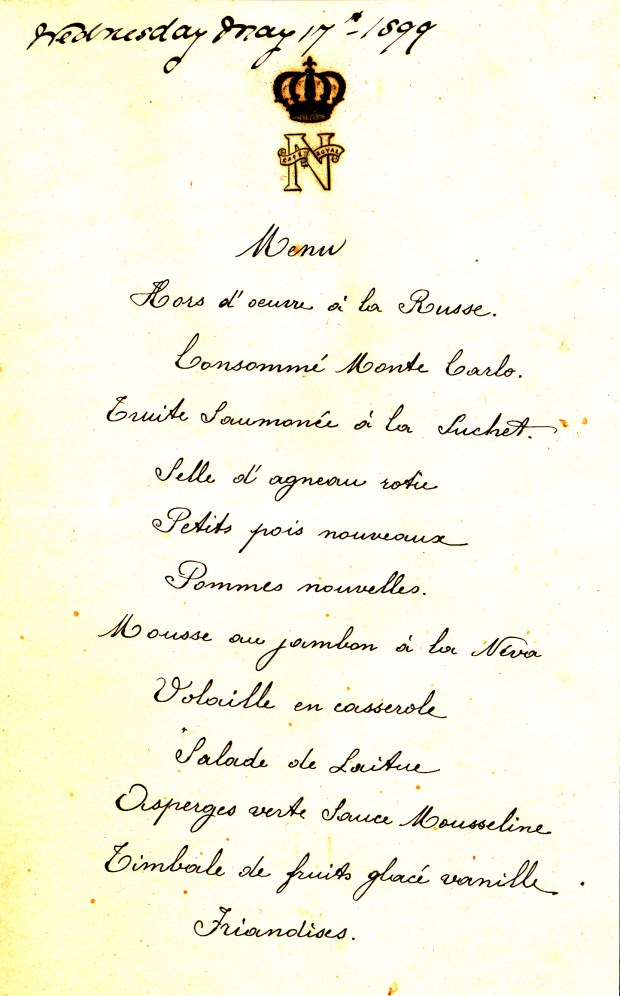 Wednesday May 17th - 1899
CAFÉ ROYAL
N
Menu
Hors d'oeuvre à la Russe.
Consommé Monte Carlo.
Truite Saumonée à la Suchet.
Selle d'agneau rotie
Petits pois nouveaux
Pommes nouvelles.
Mousse au jambon à la Néva
Volaille en casserole
Salade de Laitue
Asperges verte Sauce Mousseline
Timbale de fruits glacé vanille.
Friandises.